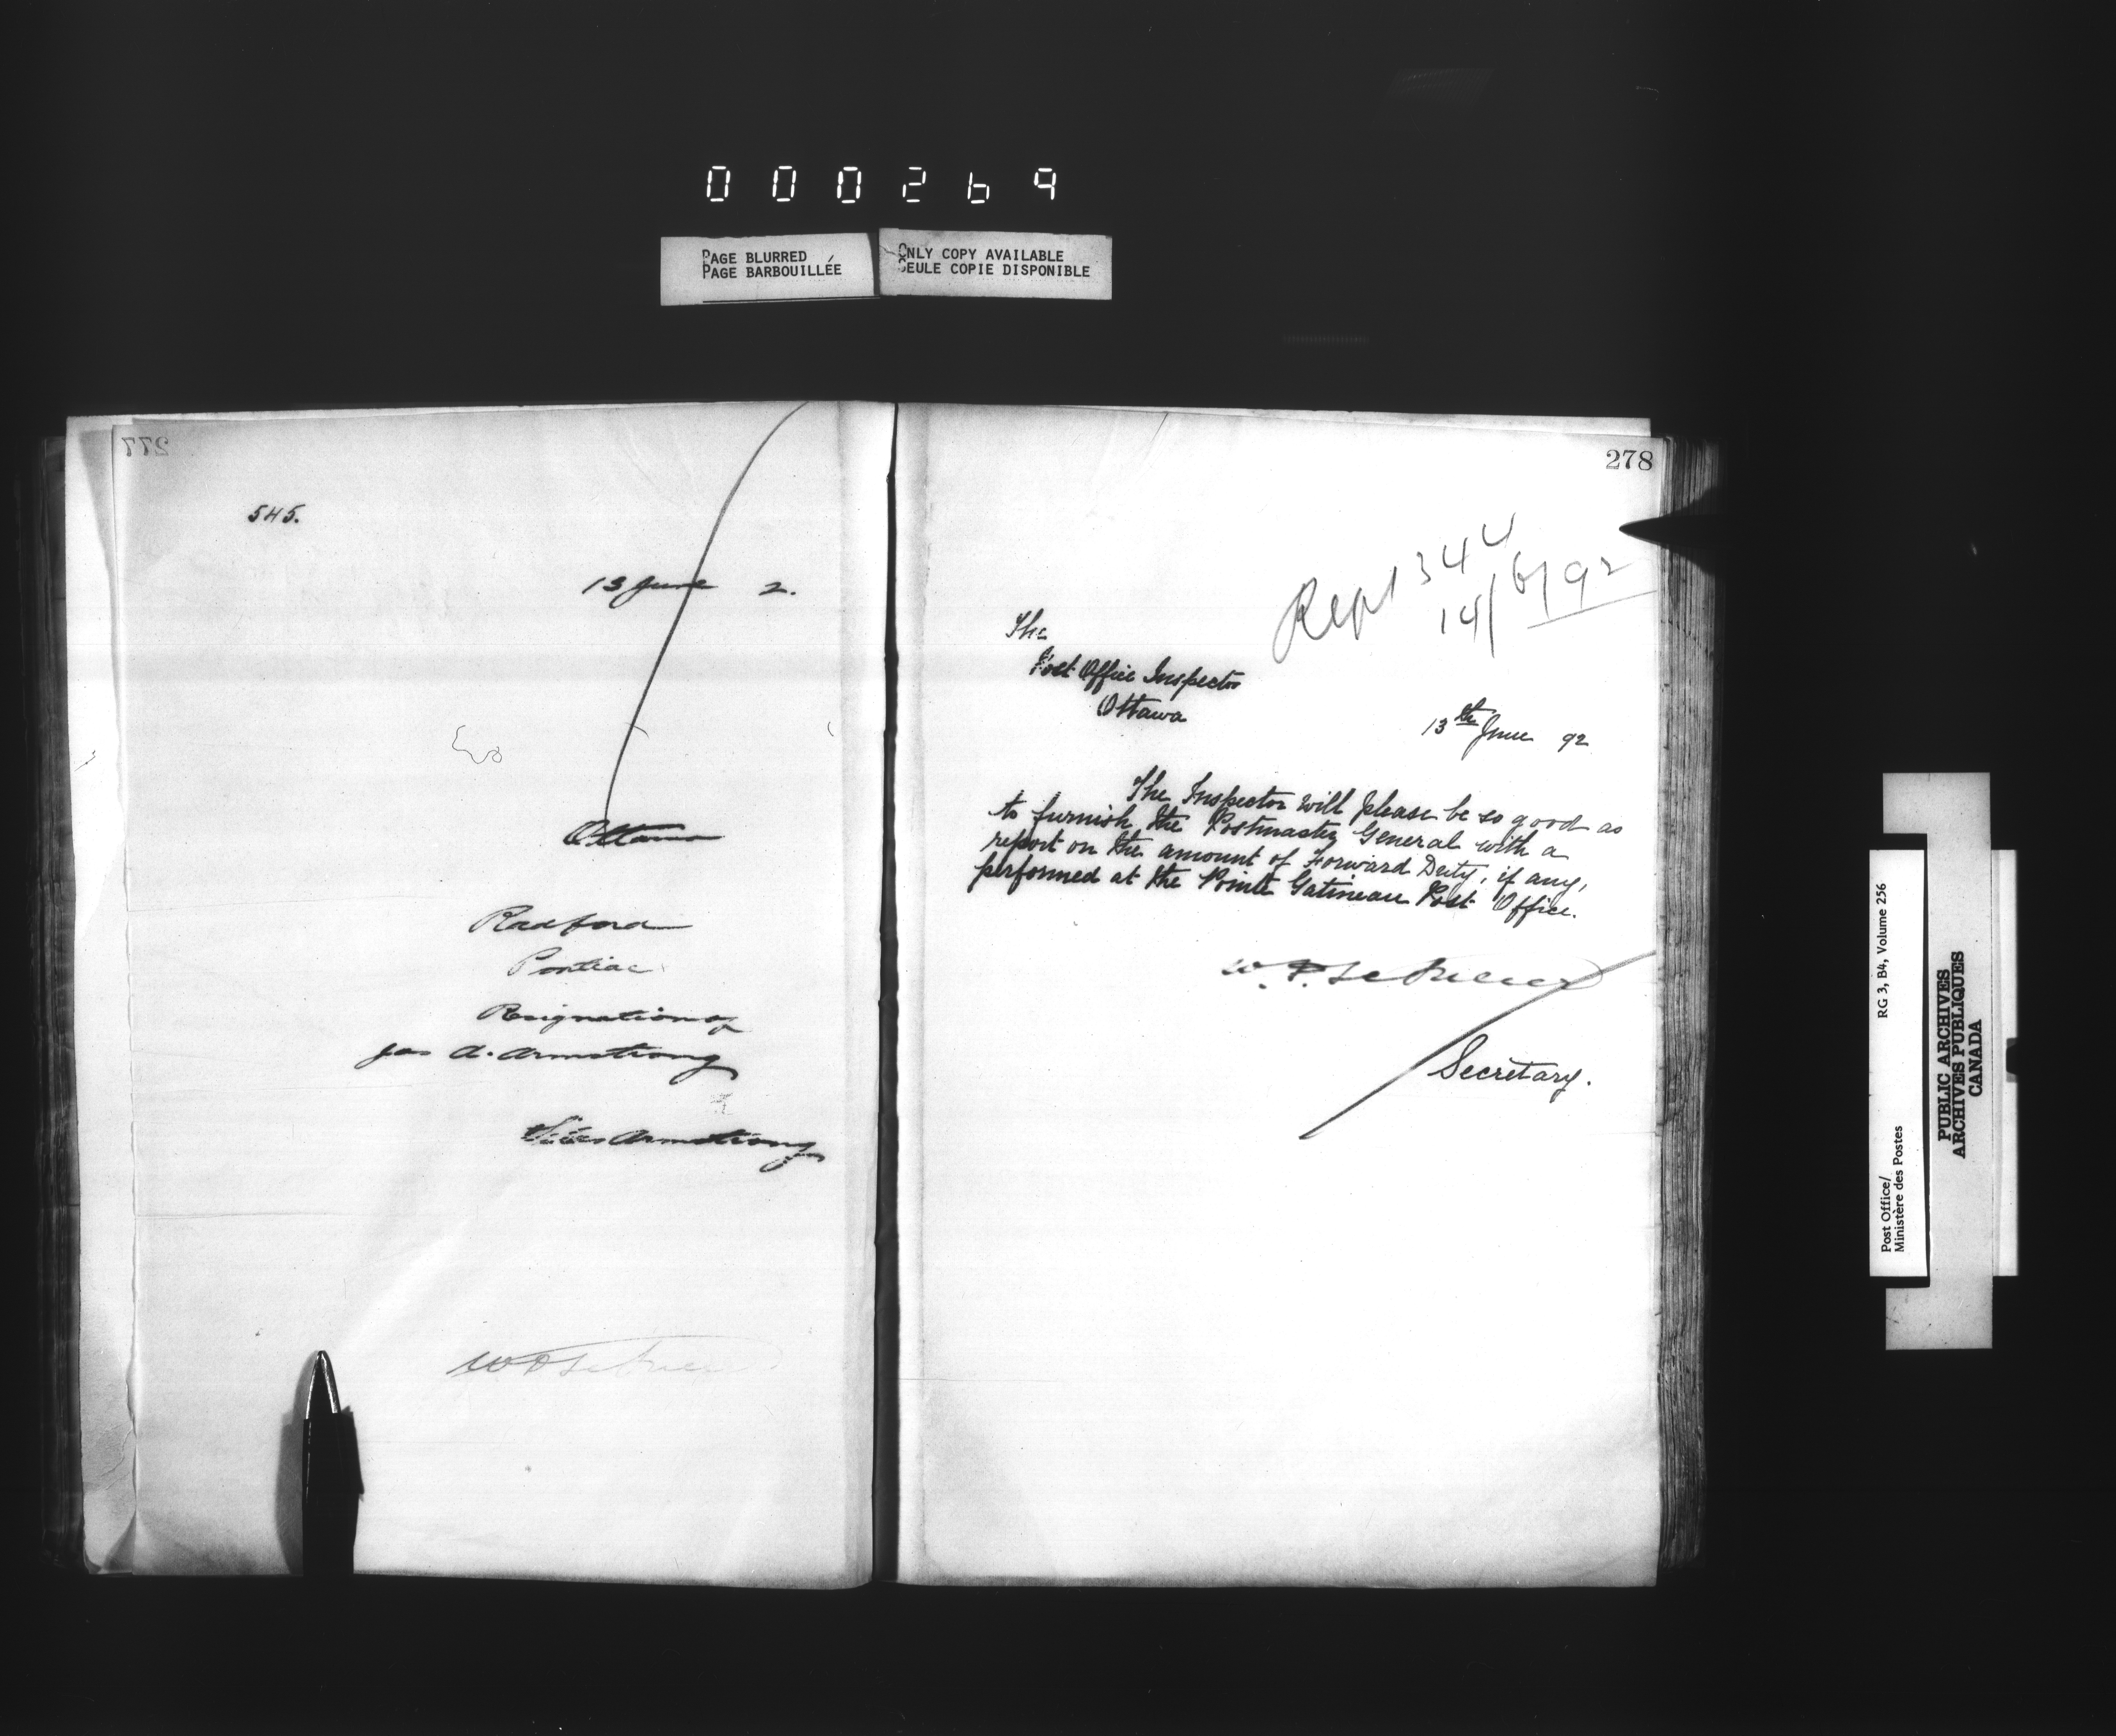 000269
PAGE BLURRED
PAGE BARBOUILLÉE
ONLY COPY AVAILABLE
SEULE COPIE DISPONIBLE
277
545.
13 June 2.
Ottawa
Radford
Pontiac
Resignation of
Jas A. Armstrong
Armstrong
278
Rept 344
14/6/92
The
Post Office Inspector
Ottawa
13th June 92
The Inspector will please be so good as
to furnish the Postmaster General with a
report on the amount of Forward Duty, if any,
performed at the Pointe Gatineau Post Office.
Secretary.
Post Office/
Ministère des Postes
RG 3, B4, Volume 256
PUBLIC ARCHIVES
ARCHIVES PUBLIQUES
CANADA